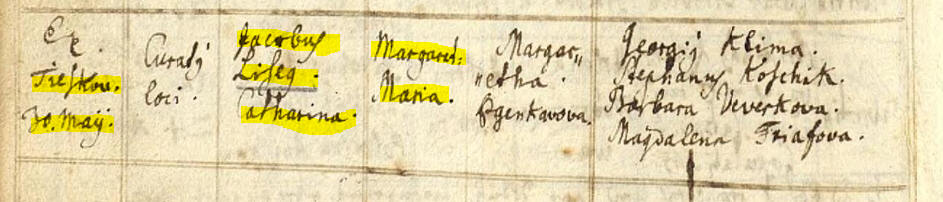 Ex
Tieskow.
30. Maij.
Curatÿ
loci.
Jacobus
Liseq.
Catharina.
Margaret:
Maria.
Margar„
etha.
Georgij Klima.
Stephanus Koschik.
Barbara Veverkova.
Magdalena